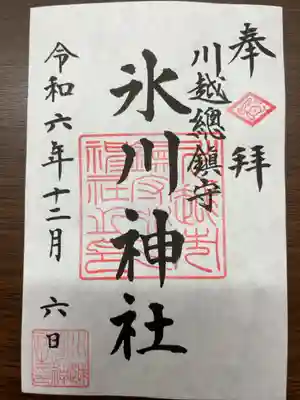 奉拝
川越總鎮守
氷川神社
令和六年十二月 六日